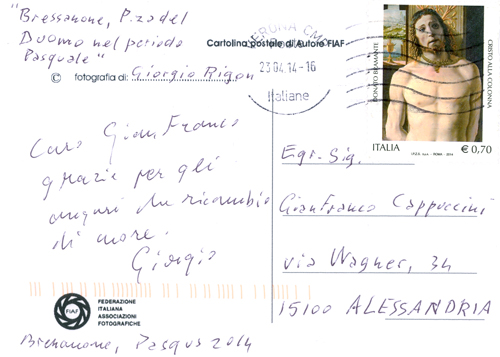 "Bressanone, P.za del
Duomo nel periodo
Pasquale"
Cartolina postale di Autore FIAF
© fotografia di: Giorgio Rigon
VERONA CMP
23.04.14-16
Italiane
DONATO BRAMANTE
CRISTO ALLA COLONNA
ITALIA
€ 0,70
Caro GianFranco
grazie per gli
auguri che ricambio
di cuore.
Giorgio
Egr. Sig.
GianFranco Cappuccini
via Wagner, 34
15100 ALESSANDRIA
FIAF
FEDERAZIONE
ITALIANA
ASSOCIAZIONI
FOTOGRAFICHE
Bressanone, Pasqua 2014